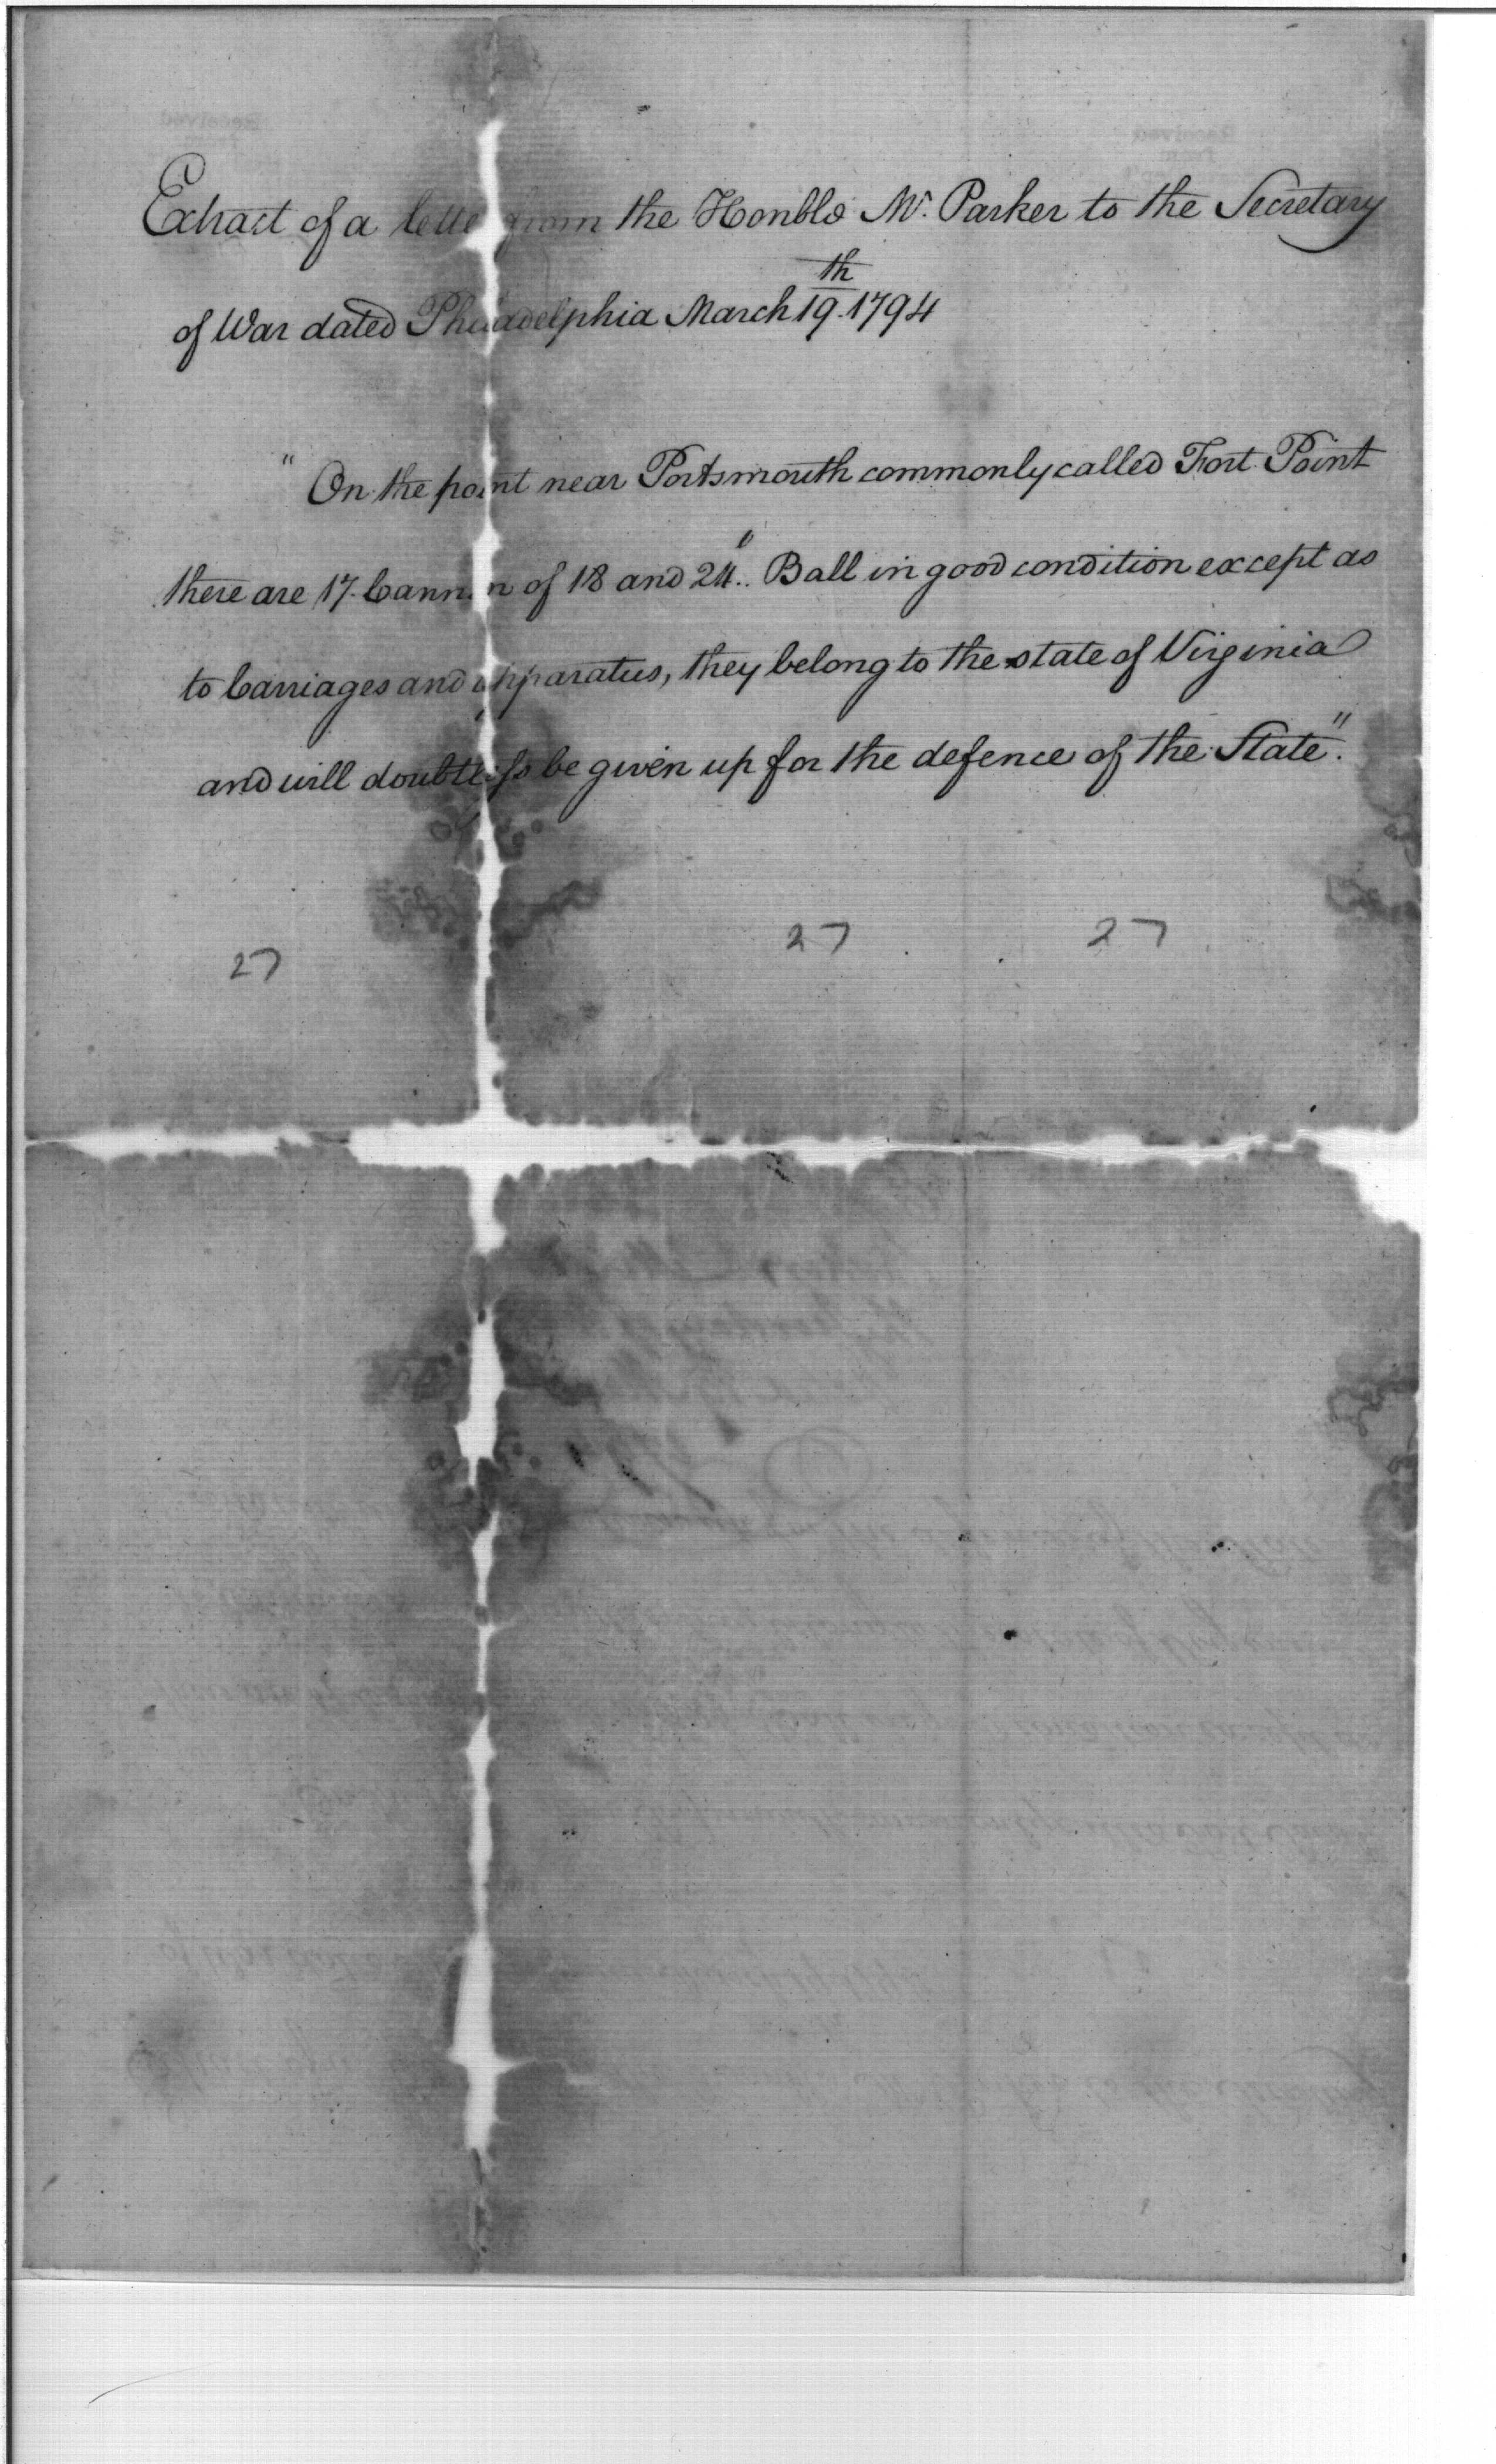 Extract of a letter from the Honble Mr. Parker to the Secretary
of War dated Philadelphia March 19th. 1794
" On the point near Portsmouth commonly called Fort Point
there are 17 Cannon of 18 and 24.." Ball in good condition except as
to Carriages and apparatus, they belong to the state of Virginia
and will doubtless be given up for the defence of the State".
27 27 27